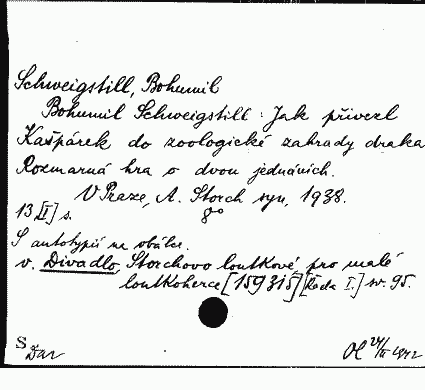 Schweigstill, Bohumil
Bohumil Schweigstill: Jak přivezl
Kašpárek do zoologické zahrady draka
Rozmarná hra o dvou jednáních.
V Praze, A. Storch syn, 1938.
8°
13 [II] s.
S autotypií na obálce.
v. Divadlo, Storchovo loutkové pro malé
loutkoherce [159315] [Řada I.] sv. 95.
S
Dar